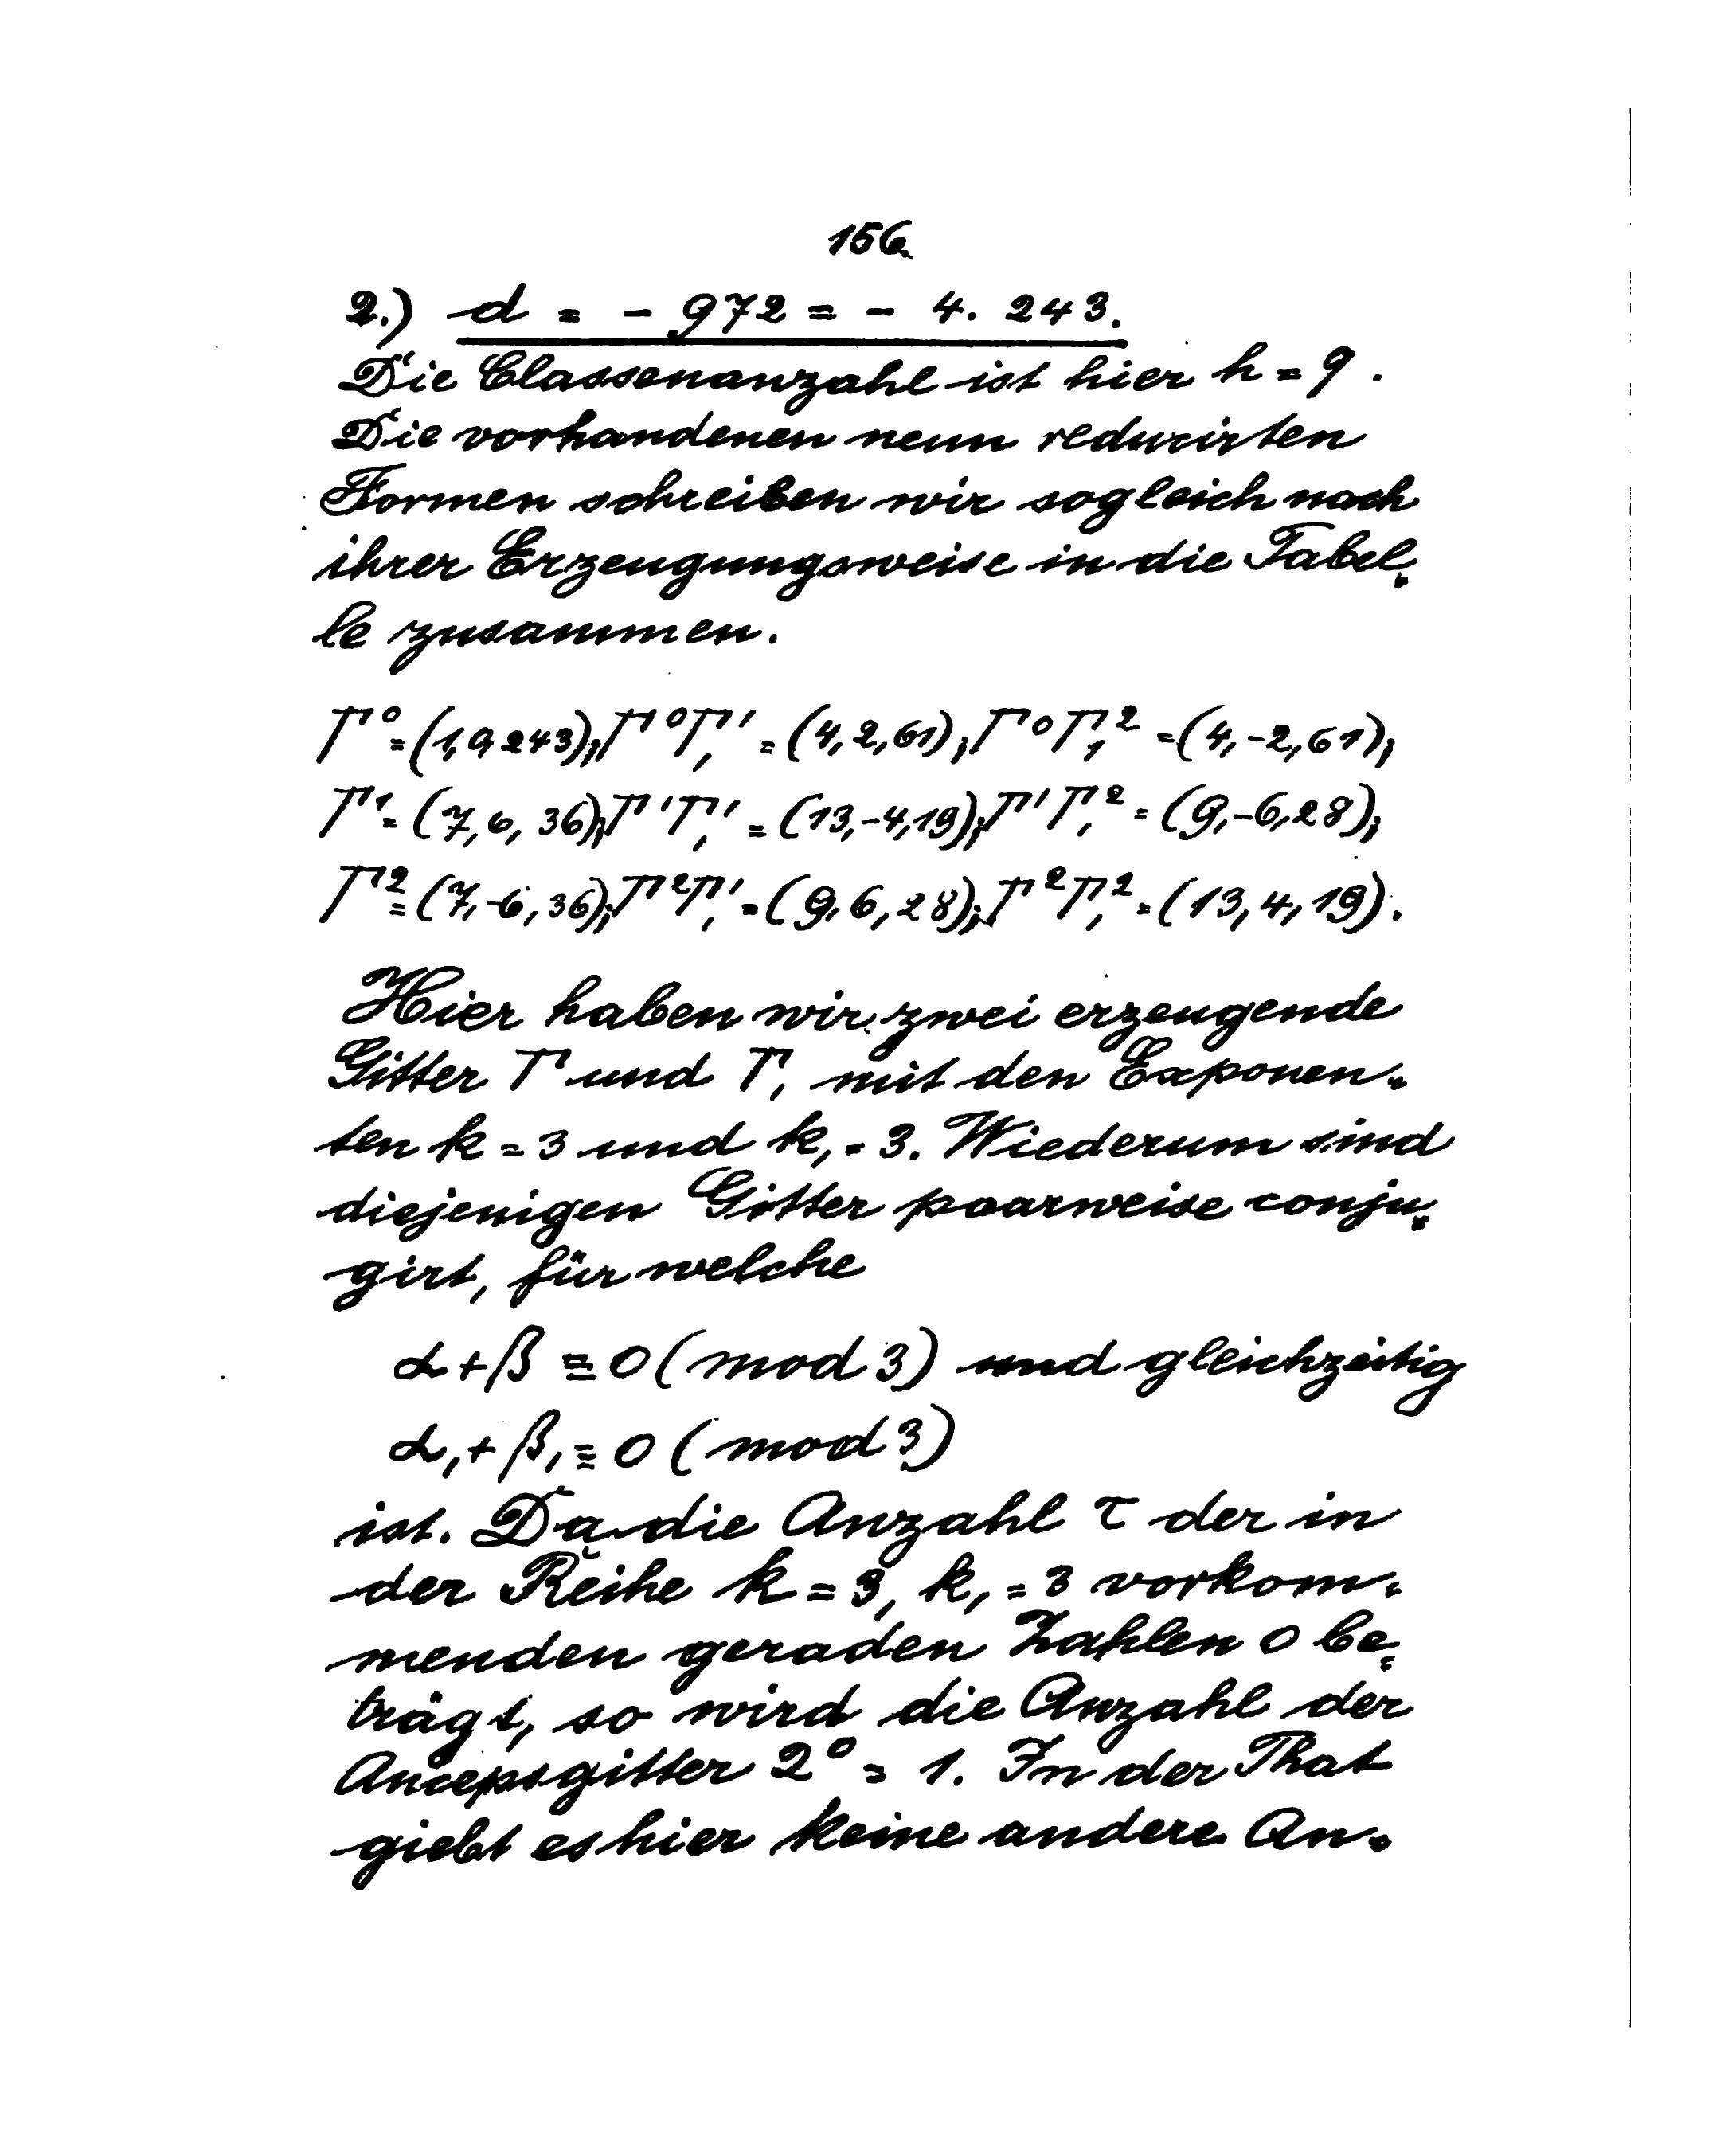 156.
2.) d = - 972 = - 4. 243.
Die Classenanzahl ist hier h = 9.
Die vorhandenen neun reducirten
Formen schreiben wir sogleich nach
ihrer Erzeugungsweise in die Tabel-
le zusammen.
Γ⁰ = (1, 0, 243); Γ⁰Γ₁¹ = (4, 2, 61); Γ⁰Γ₁² = (4, -2, 61);
Γ¹ = (7, 6, 36); Γ¹Γ₁¹ = (13, -4, 19); Γ¹Γ₁² = (9, -6, 28);
Γ² = (7, -6, 36); Γ²Γ₁¹ = (9, 6, 28); Γ²Γ₁² = (13, 4, 19).
Hier haben wir zwei erzeugende
Gitter Γ und Γ₁ mit den Exponen-
ten k = 3 und k₁ = 3. Wiederum sind
diejenigen Gitter paarweise conju-
girt, für welche
α + β ≡ 0 (mod 3) und gleichzeitig
α₁ + β₁ ≡ 0 (mod 3)
ist. Da die Anzahl τ der in
der Reihe k = 3, k₁ = 3 vorkom-
menden geraden Zahlen 0 be-
trägt, so wird die Anzahl der
Ancepsgitter 2⁰ = 1. In der That
giebt es hier keine andere An-